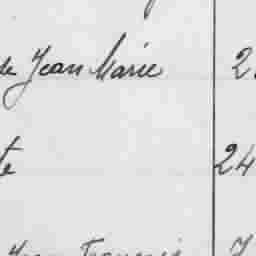 de Jean Marie 2
te 24
Jean François